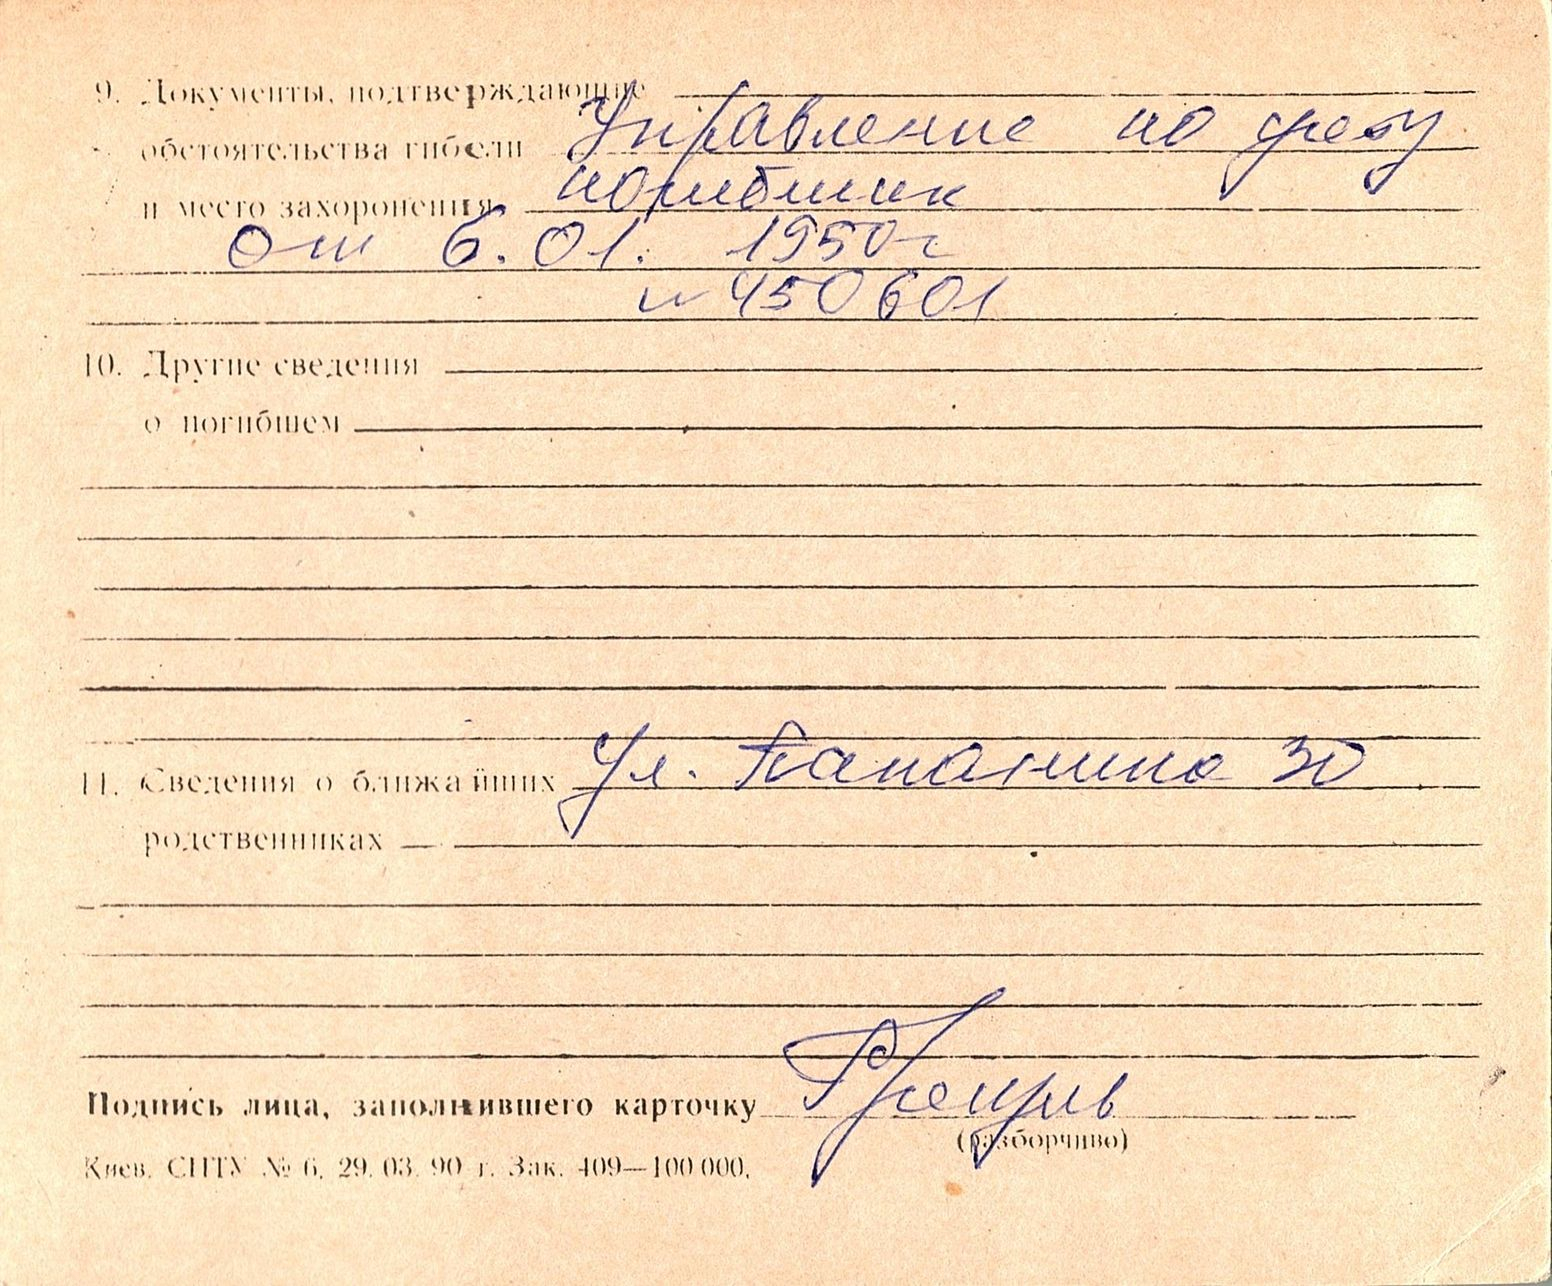 9. Документы, подтверждающие
обстоятельства гибели Управление по
и место захоронения погибших
от 6.01. 1950г
№ 450601
10. Другие сведения
о погибшем
11. Сведения о ближайших ул. Папанина 30
родственниках
Подпись лица, заполнившего карточку
(разборчиво)
Киев. СПТУ № 6, 29. 03. 90 г. Зак. 409—100 000.